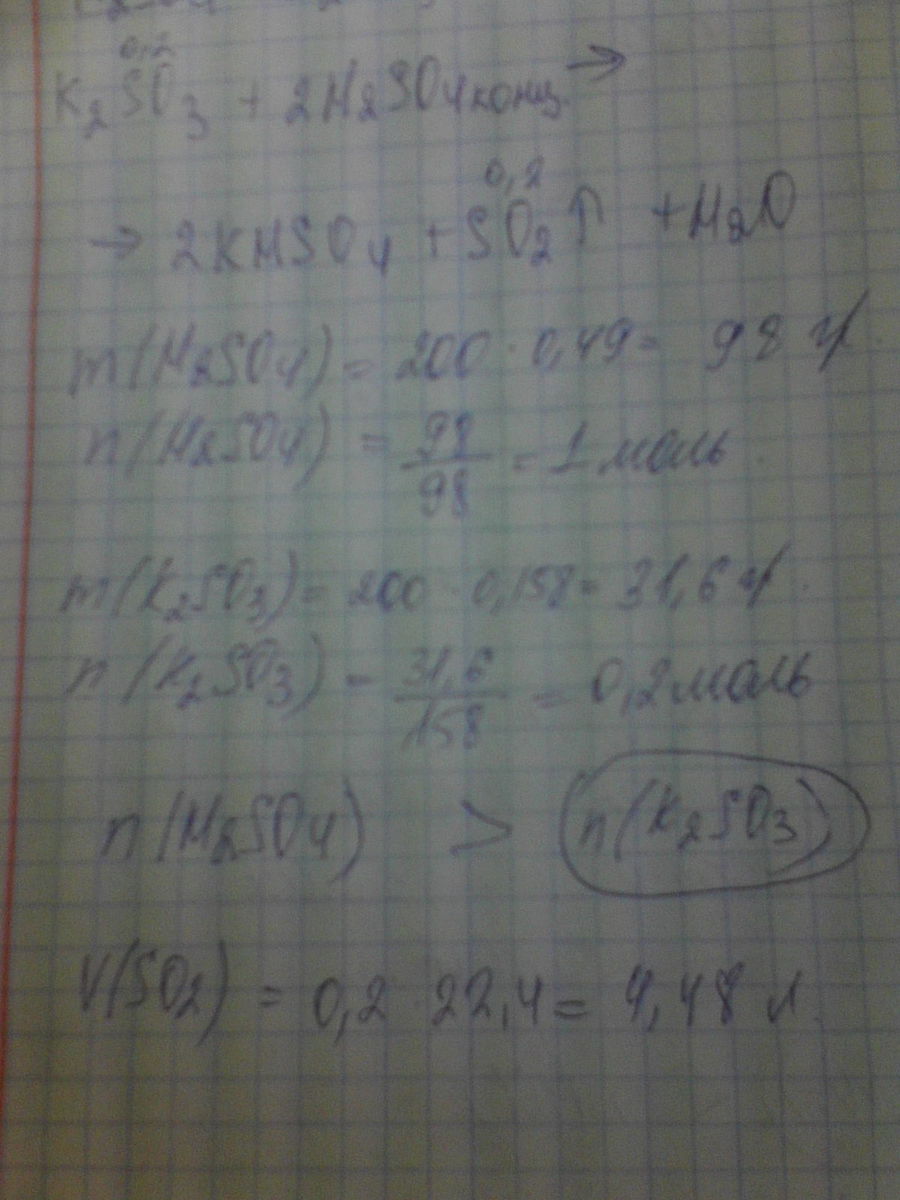 0,2
K₂SO₃ + 2H₂SO₄конц. →
0,2
→ 2KHSO₄ + SO₂↑ + H₂O
m(H₂SO₄) = 200 · 0,49 = 98 гр.
n(H₂SO₄) = 98/98 = 1 моль.
m(K₂SO₃) = 200 · 0,158 = 31,6 гр.
n(K₂SO₃) = 31,6/158 = 0,2 моль
n(H₂SO₄) > n(K₂SO₃)
V(SO₂) = 0,2 · 22,4 = 4,48 л.